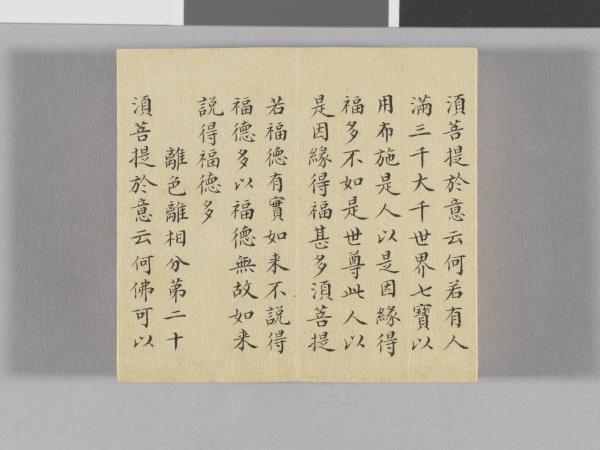 須菩提於意云何若有人
滿三千大千世界七寶以
用布施是人以是因緣得
福多不如是世尊此人以
是因緣得福甚多須菩提
若福德有實如来不說得
福德多以福德無故如来
說得福德多
離色離相分第二十
須菩提於意云何佛可以